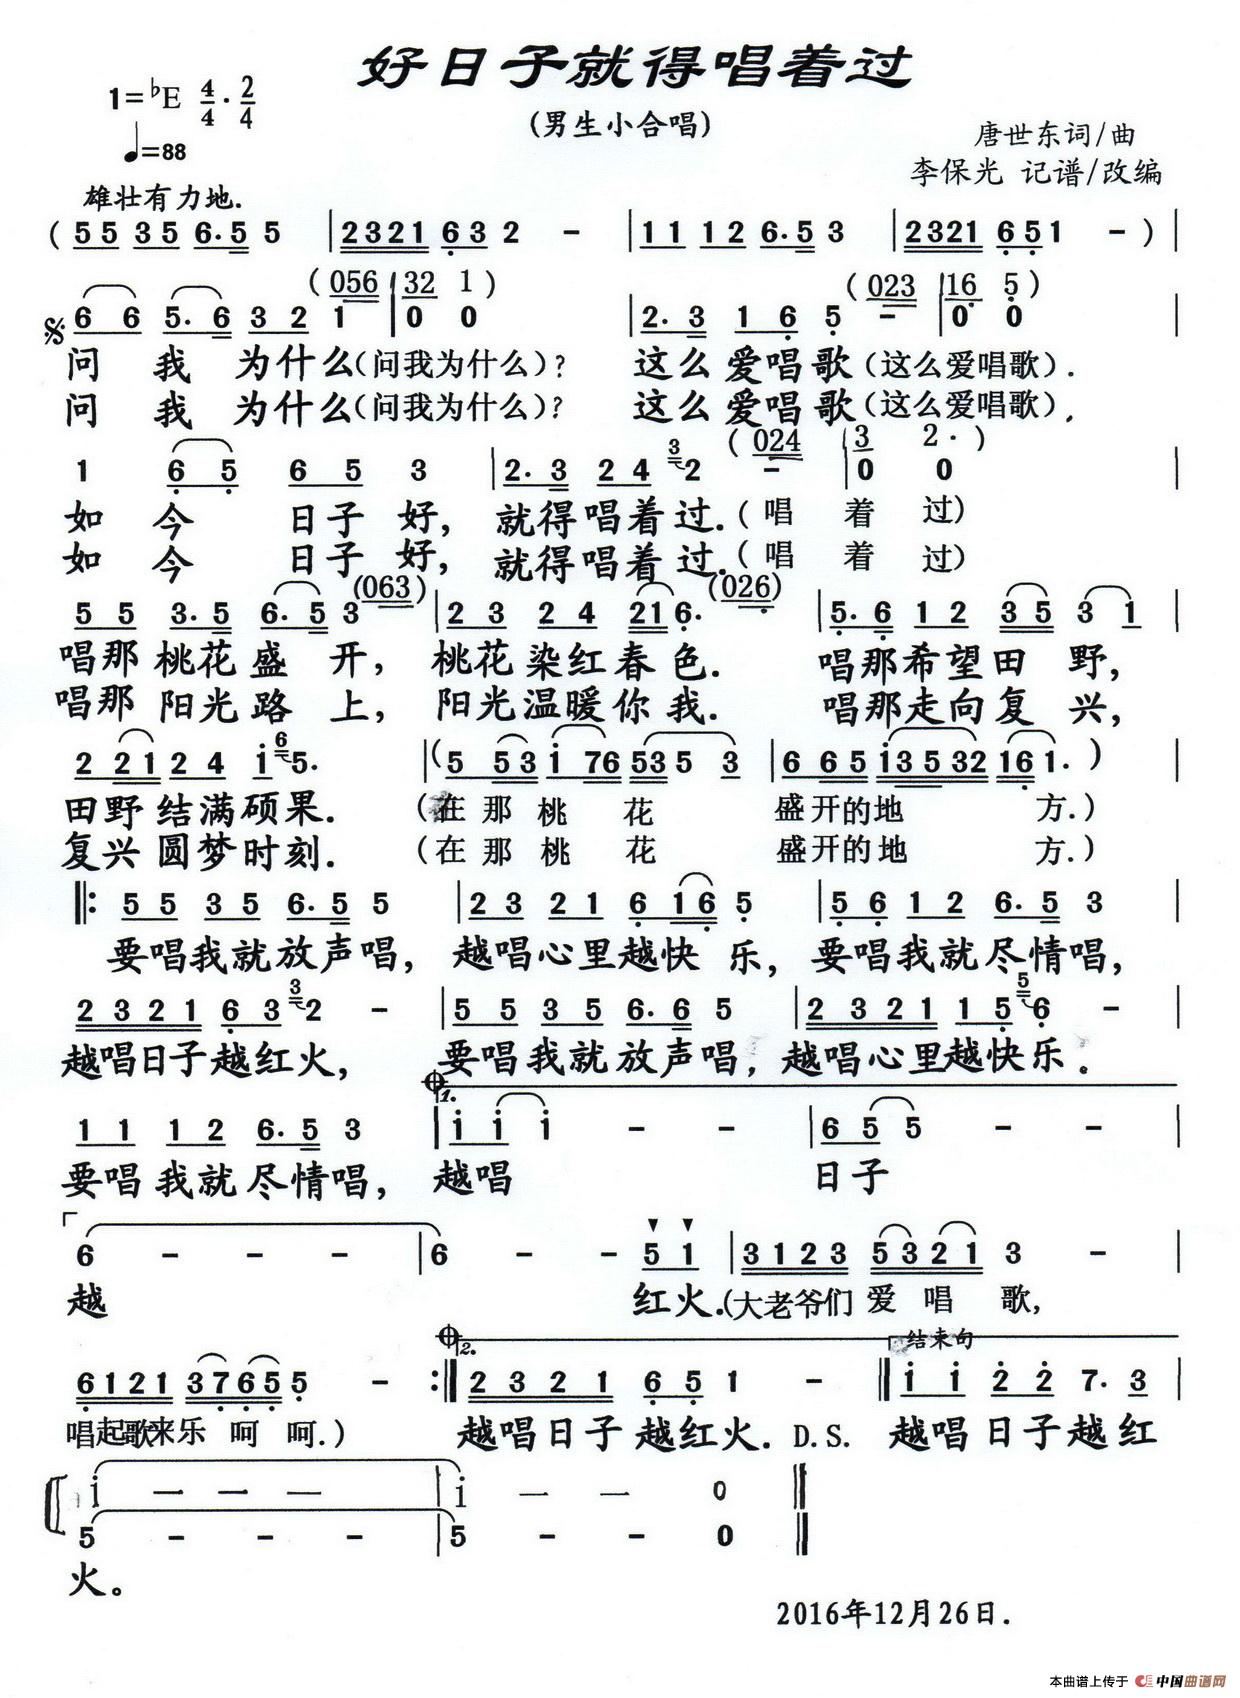 好日子就得唱着过
1=♭E 4/4·2/4
(男生小合唱)
♩=88
唐世东词/曲
李保光 记谱/改编
雄壮有力地.
(55 35 6·5 5 |2321 63 2 - |11 12 6·5 3 |2321 651 -)|
(056 |32 1) (023 |16 5)
6 6 5·6 3 2 1 |0 0 |2·3 1 6 5 - |0 0 |
问 我 为什么(问我为什么)? 这么爱唱歌(这么爱唱歌).
问 我 为什么(问我为什么)? 这么爱唱歌(这么爱唱歌).
(024 |3 2·)
1 6 5 6 5 3 |2·3 2 4 3 2 - |0 0 |
如 今 日子 好, 就得唱着过.(唱 着 过)
如 今 日子 好, 就得唱着过.(唱 着 过)
(063) (026)
5 5 3·5 6·5 3 |2 3 2 4 21 6· |5·6 1 2 3 5 3 1 |
唱那 桃花 盛 开, 桃花染红春色. 唱那希望田 野,
唱那 阳光 路 上, 阳光温暖你我. 唱那走向复 兴,
2 2 1 2 4 i 6 5· |(5 53 i 76 53 5 3 |6 65 i3532 161·)|
田野结满硕果. (在 那 桃 花 盛开的地 方.)
复兴圆梦时刻. (在 那 桃 花 盛开的地 方.)
‖: 55 35 6·5 5 |23 21 6 16 5 |56 12 6·5 3 |
要唱我就放声唱, 越唱心里越快 乐, 要唱我就尽情唱,
2321 63 3 2 - |55 35 6·6 5 |2321 15 5 6 - |
越唱日子越红火, 要唱我就放声唱, 越唱心里越快乐.
1.
11 12 6·5 3 |i i i - - |6 5 5 - - |
要唱我就尽情唱, 越唱 日子
6 - - - |6 - - 5 1 |3123 5321 3 - |
越 红火.(大老爷们 爱 唱 歌,
2. 结束句
6121 3765 5 - :‖2321 65 1 - ‖i i 2 2 7·3 |
唱起歌来乐 呵 呵.) 越唱日子越红火. D.S. 越唱日子越红
i - - - |i - - 0 ‖
5 - - - |5 - - 0 ‖
火。
2016年12月26日.
本曲谱上传于 中国曲谱网